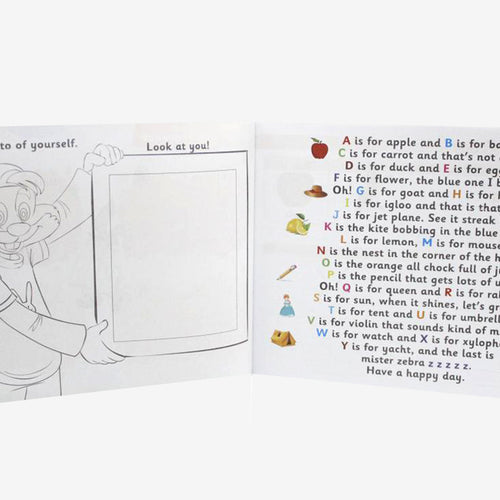 to of yourself.
Look at you!
A is for apple and B is for
C is for carrot and that's not
D is for duck and E is for
F is for flower, the blue one I
Oh! G is for goat and H is for
I is for igloo and that is that
J is for jet plane. See it streak
K is the kite bobbing in the blue
L is for lemon, M is for mouse
N is the nest in the corner of the
O is the orange all chock full of
P is the pencil that gets lots of
Oh! Q is for queen and R is for
S is for sun, when it shines, let's
T is for tent and U is for
V is for violin that sounds kind of
W is for watch and X is for
Y is for yacht, and the last is
mister zebra z z z z z.
Have a happy day.